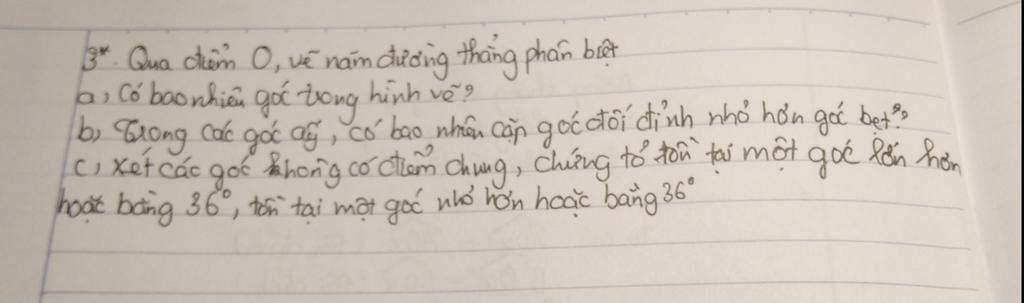 3*. Qua điểm O, vẽ năm đường thẳng phân biệt
a, Có bao nhiêu góc trong hình vẽ?
b, Trong các góc ấy, có bao nhiêu cặp góc đối đỉnh nhỏ hơn góc bẹt?
c, Xét các góc không có điểm chung, chứng tỏ tồn tại một góc lớn hơn
hoặc bằng 36°, tồn tại một góc nhỏ hơn hoặc bằng 36°